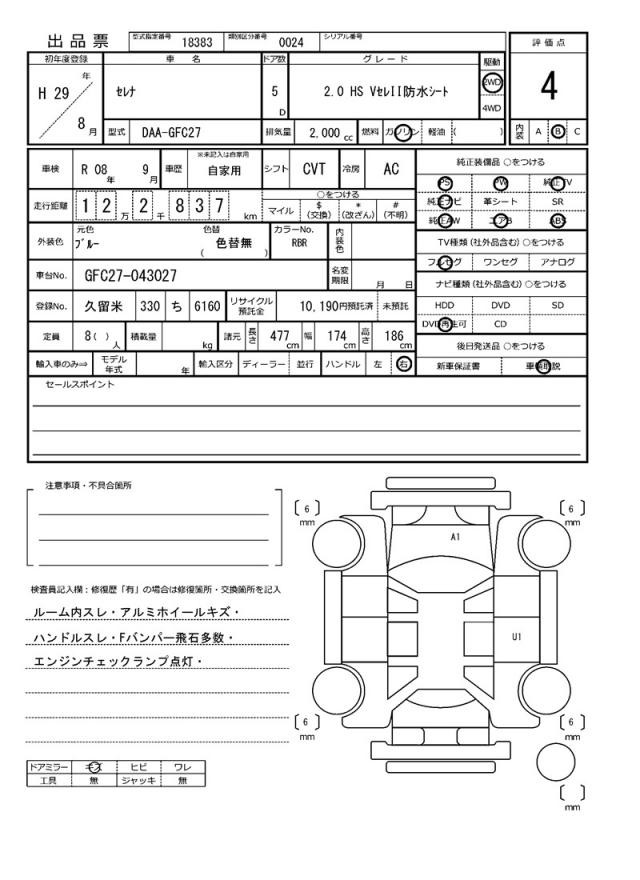 出品票
型式指定番号 18383 類別区分番号 0024 シリアル番号
初年度登録 車名 ドア数 グレード 駆動 評価点
H 29 年 8 月
セレナ 5 D 2.0 HS VセレII防水シート 2WD 4WD
4
型式 DAA-GFC27 排気量 2,000 cc 燃料 ガソリン 軽油 ( )
内装 A B C
車検 R 08 年 9 月 車歴 ※未記入は自家用 自家用 シフト CVT 冷房 AC
走行距離 1 2 万 2 千 8 3 7 km
○をつける
マイル $ (交換) * (改ざん) # (不明)
外装色 元色 ブルー 色替 色替無 ( ) カラーNo. RBR 内装色
車台No. GFC27-043027 名変期限 月 日
登録No. 久留米 330 ち 6160 リサイクル預託金 10,190円預託済 未預託
定員 8( ) 人 積載量 kg 諸元 長さ 477 cm 幅 174 cm 高さ 186 cm
輸入車のみ⇒ モデル年式 年 輸入区分 ディーラー 並行 ハンドル 左 右
純正装備品 ○をつける
PS PW 純正TV
純正ナビ 革シート SR
純正AW エアB ABS
TV種類 (社外品含む) ○をつける
フルセグ ワンセグ アナログ
ナビ種類 (社外品含む) ○をつける
HDD DVD SD
DVD再生可 CD
後日発送品 ○をつける
新車保証書 車輌取説
セールスポイント
注意事項・不具合箇所
検査員記入欄：修復歴「有」の場合は修復箇所・交換箇所を記入
ルーム内スレ・アルミホイールキズ・
ハンドルスレ・Fバンパー飛石多数・
エンジンチェックランプ点灯・
ドアミラー キズ ヒビ ワレ
工具 無 ジャッキ 無
〔 6 〕 mm
〔 6 〕 mm
A1
U1
〔 6 〕 mm
〔 6 〕 mm
〔 〕 mm